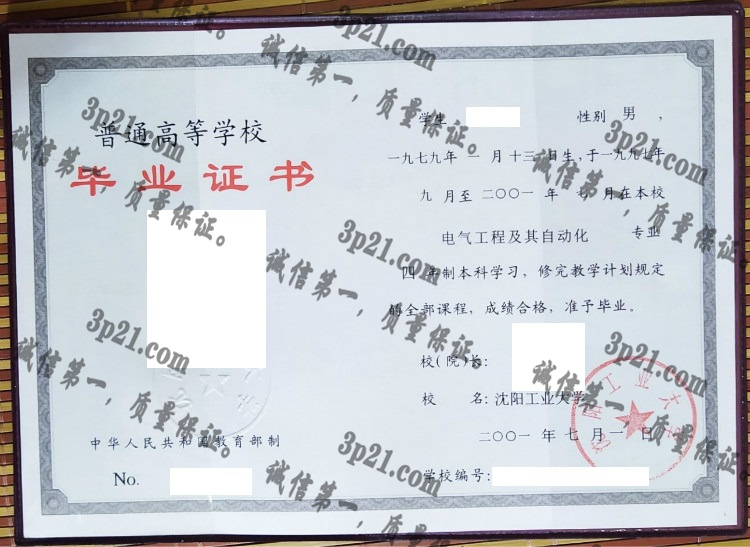 普通高等学校
毕业证书
中华人民共和国教育部制
No.
学生 性别 男 ，
一九七九年 一 月十三 日生，于一九九七年
九 月至 二〇〇一 年 七 月在本校
电气工程及其自动化 专业
四 年制本科学习，修完教学计划规定
的全部课程，成绩合格，准予毕业。
校(院)长：
校 名：沈阳工业大学
二〇〇一 年 七 月 一 日
学校编号：
沈阳工业大学
3p21.com
诚信第一，质量保证。
3p21.com
诚信第一，质量保证。
3p21.com
诚信第一，质量保证。
3p21.com
诚信第一，质量保证。
3p21.com
诚信第一，质量保证。
3p21.com
诚信第一，质量保证。
3p21.com
诚信第一，质量保证。